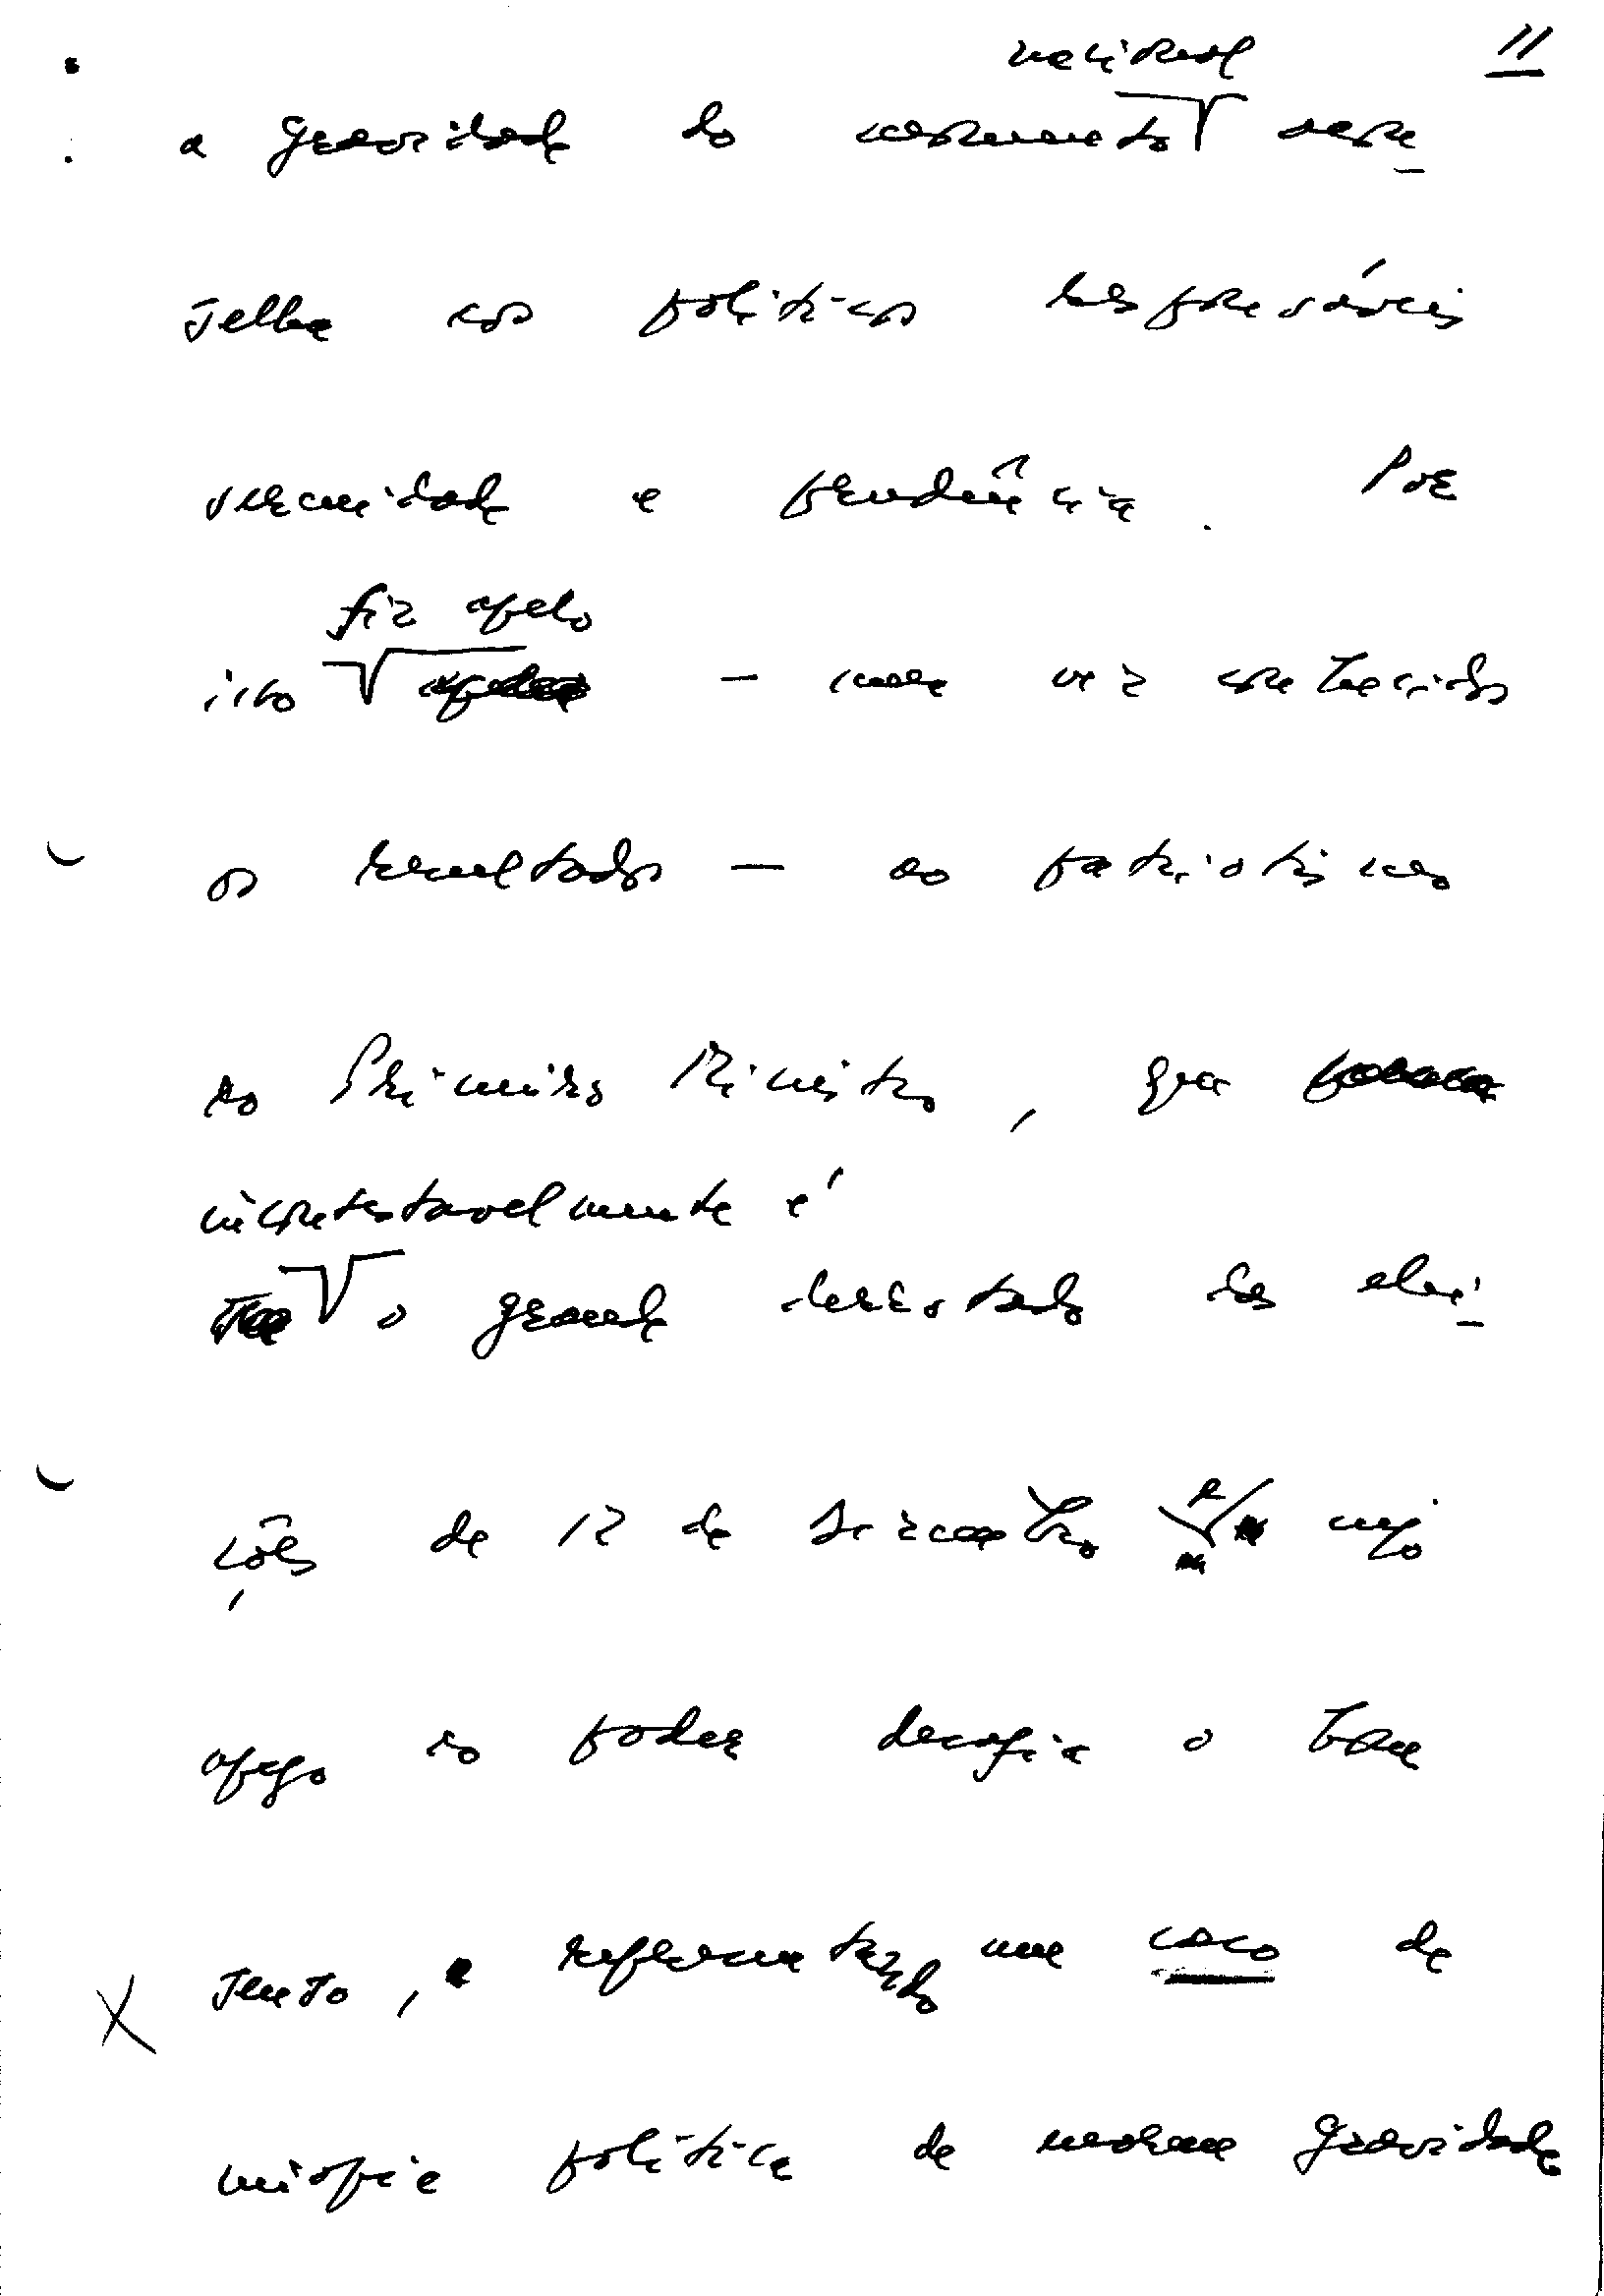 nacional
11
a gravidade do momento acon
selha aos políticos responsáveis
serenidade e prudência. Por
fiz apelo
isso — uma vez conhecidos
os resultados — ao patriotismo
do Primeiro Ministro, que
incontestavelmente é
o grande derrotado das elei
ções de 12 de Dezembro e cujo
apego ao poder desafia o bom
senso, representando um caso de
miopia política de extrema gravidade